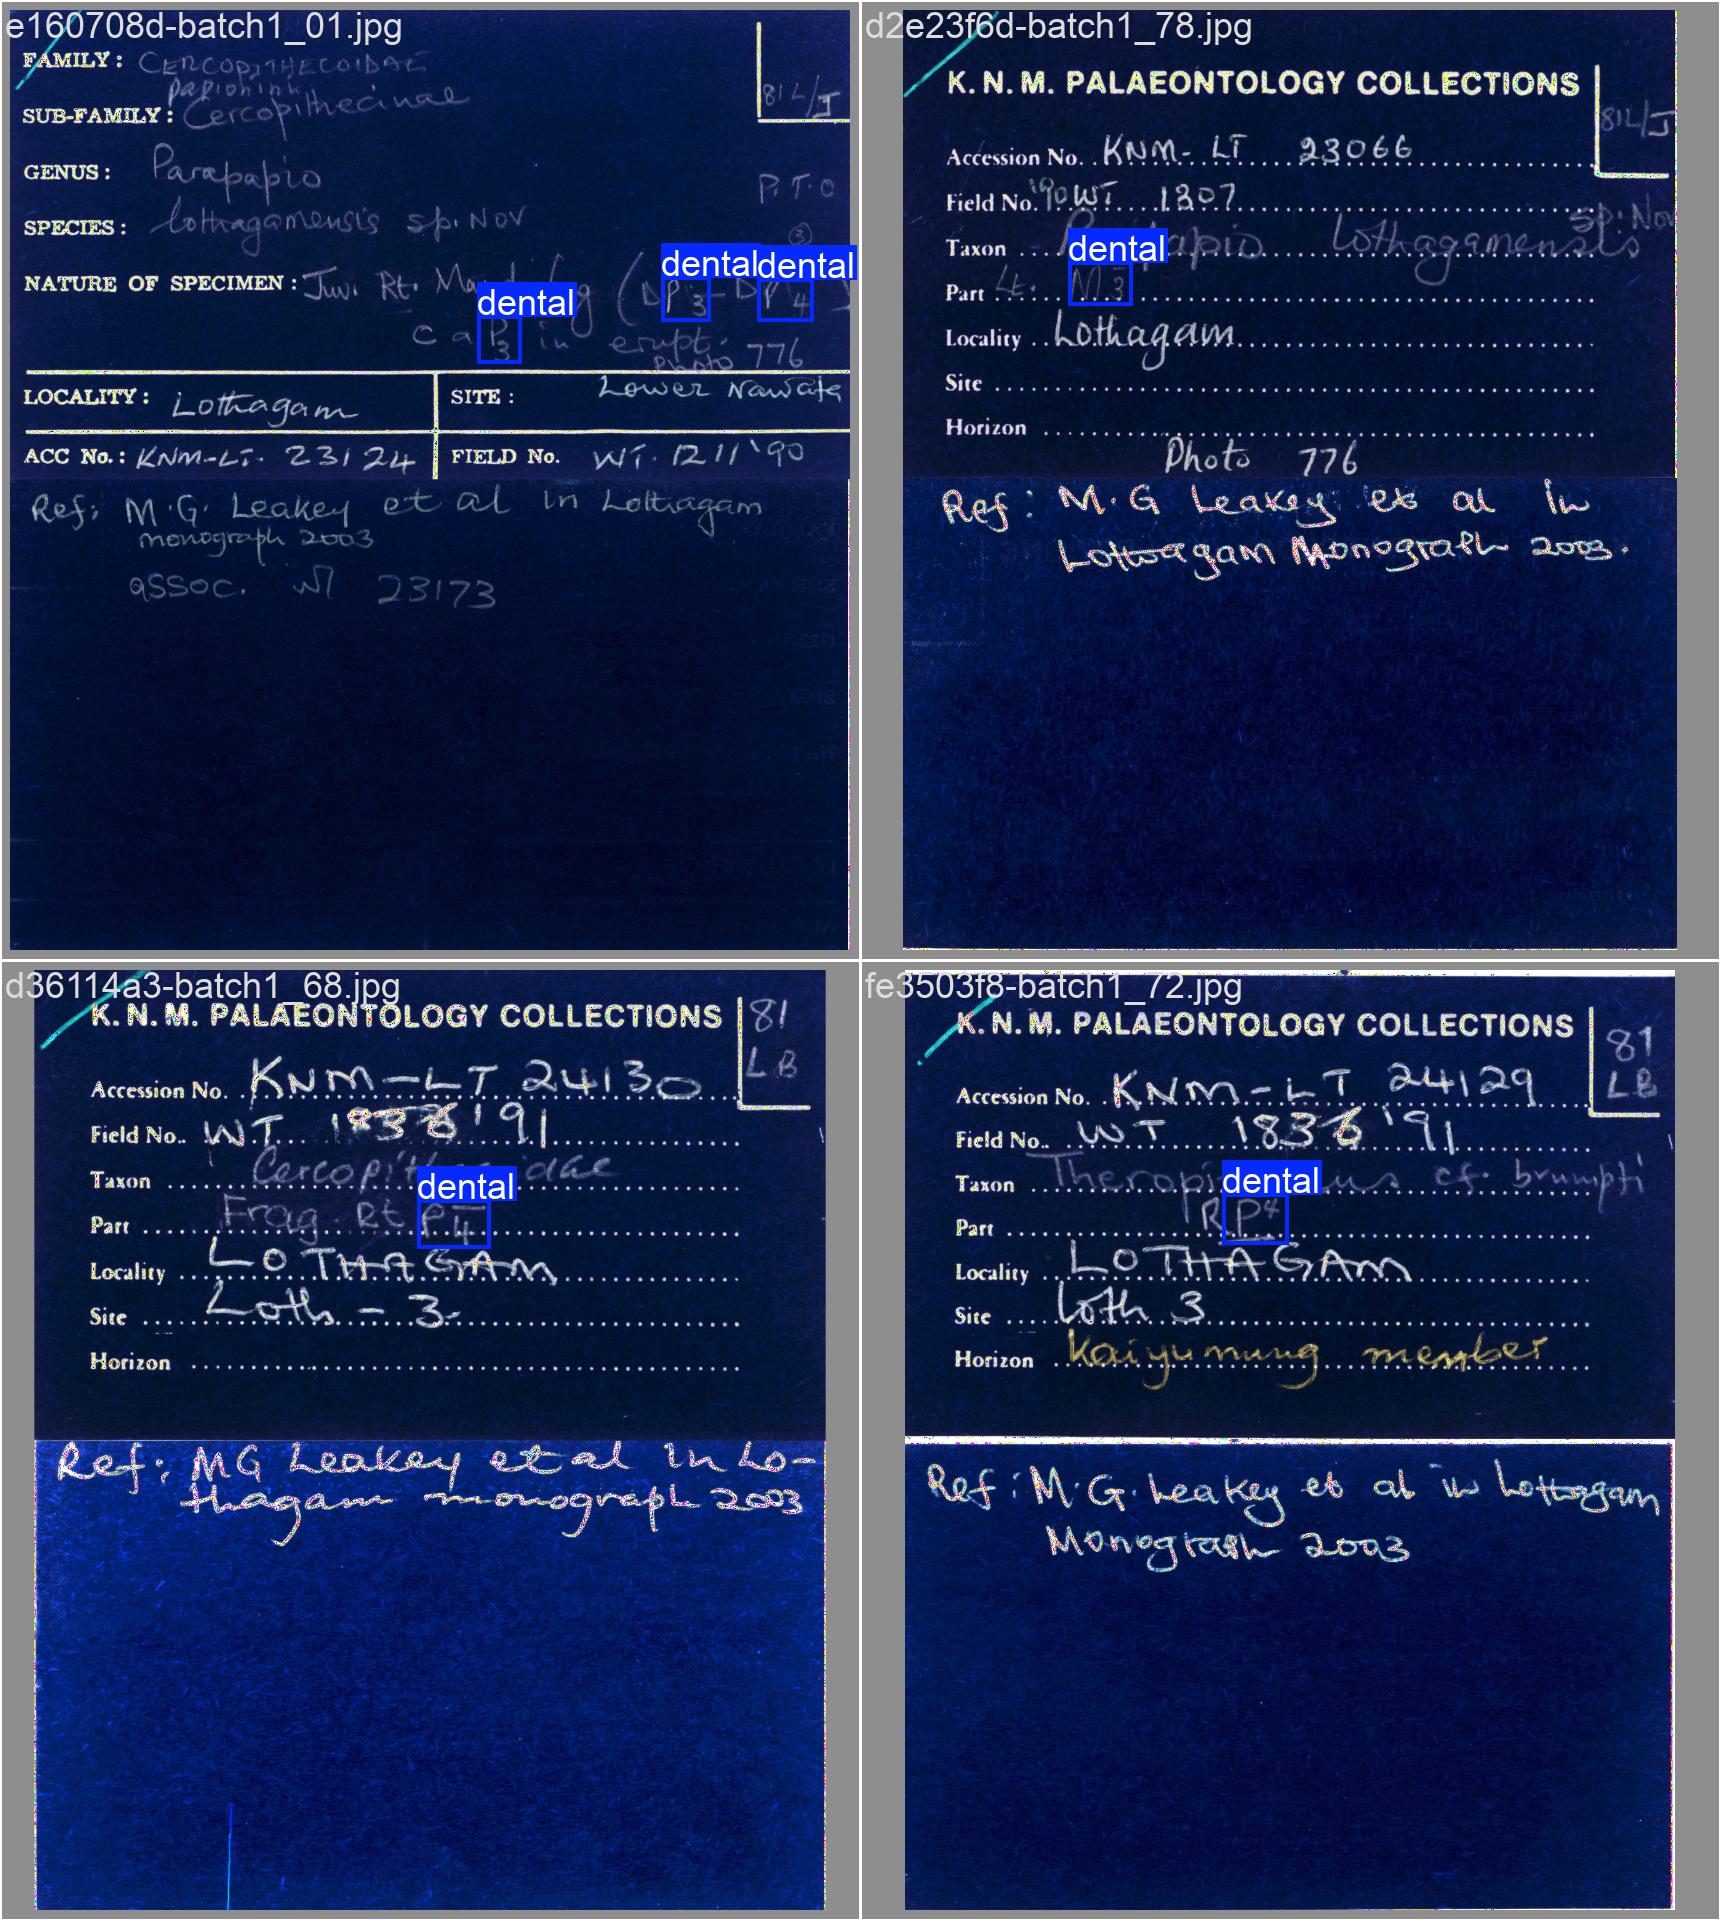 e160708d-batch1_01.jpg
FAMILY: CERCOPITHECOIDAE
Papionini
SUB-FAMILY: Cercopithecinae
81L/J
GENUS: Parapapio
P.T.O
SPECIES: lothagamensis sp. Nov
②
NATURE OF SPECIMEN: Juv. Rt. (DP3-DP4)
dental dental
dental
P3 in erupt.
Photo 776
LOCALITY: Lothagam
SITE: Lower Nawata
ACC No.: KNM-LT. 23124
FIELD No. WT. 1211 '90
Ref: M.G. Leakey et al in Lothagam
monograph 2003
assoc. 23173
d2e23f6d-batch1_78.jpg
K.N.M. PALAEONTOLOGY COLLECTIONS
81L/J
Accession No. KNM-LT 23066
Field No. '90 WT 1307
Taxon lothagamensis sp. Nov
dental
Part Lt. M3
Locality Lothagam
Site
Horizon
Photo 776
Ref: M.G Leakey et al In
Lothagam Monograph 2003.
d36114a3-batch1_68.jpg
K.N.M. PALAEONTOLOGY COLLECTIONS
81
LB
Accession No. KNM-LT 24130
Field No. WT 1836 '91
Taxon
dental
Part Frag Rt P4
Locality LOTHAGAM
Site Loth-3.
Horizon
Ref: MG Leakey et al In Lo-
thagam monograph 2003
fe3503f8-batch1_72.jpg
K.N.M. PALAEONTOLOGY COLLECTIONS
81
LB
Accession No. KNM-LT 24129
Field No. WT 1836 '91
Taxon cf. brumpti
dental
Part R P4
Locality LOTHAGAM
Site Loth 3
Horizon Kaiyumung member
Ref: M.G. Leakey et al in Lothagam
Monograph 2003